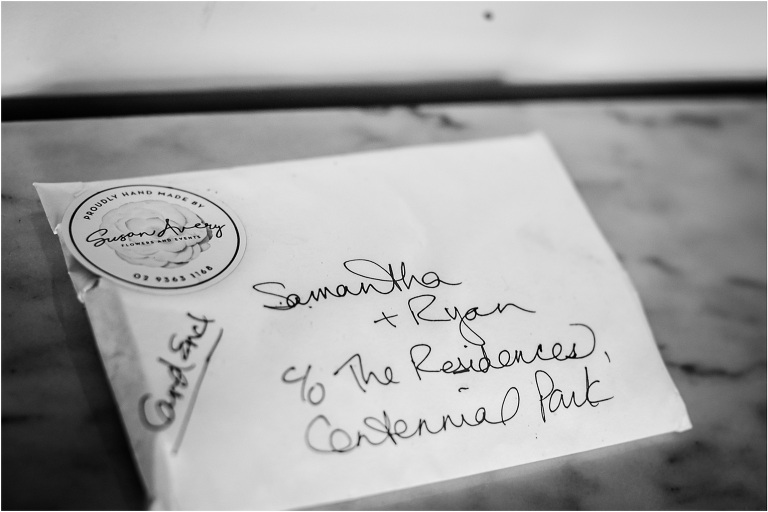 PROUDLY HAND MADE BY
Susan Avery
FLOWERS AND EVENTS
02 9363 1168
Samantha
+ Ryan
c/o The Residences,
Centennial Park
Card Encl